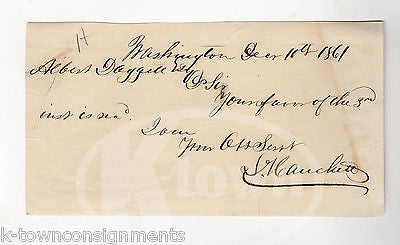 H
Washington Decr 10th 1861
Albert Daggett Esq
Dr Sir
Your favor of the 3rd
inst is recd.
I am
Your Obt Servt
J. Hanchett
k-town
k-townconsignments k-townconsignments